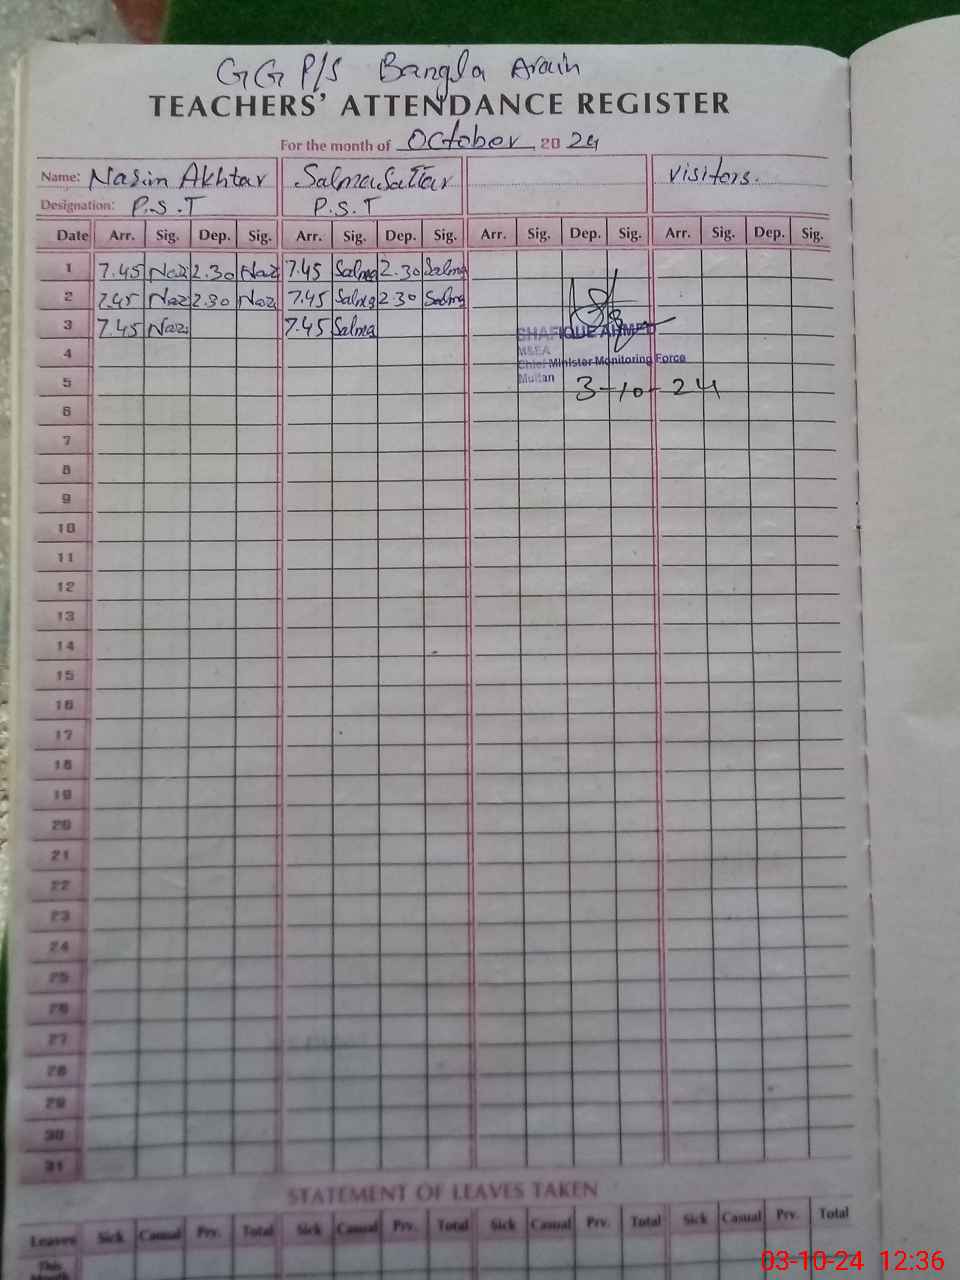 GG P/S Bangla Arain
TEACHERS' ATTENDANCE REGISTER
For the month of October 2024
Name: Nasim Akhtar Salma Sattar visitors.
Designation: P.S.T P.S.T
Date Arr. Sig. Dep. Sig. Arr. Sig. Dep. Sig. Arr. Sig. Dep. Sig. Arr. Sig. Dep. Sig.
1 7.45 Naz 2.30 Naz 7.45 Salma 2.30 Salma
2 7.45 Naz 2.30 Naz 7.45 Salma 2.30 Salma
3 7.45 Naz 7.45 Salma
SHAFIQUE AHMED
4 MSEA
Chief Minister Monitoring Force
5 Multan 3-10-24
6
7
8
9
10
11
12
13
14
15
16
17
18
19
20
21
22
23
24
25
26
27
28
29
30
31
STATEMENT OF LEAVES TAKEN
Leaves Sick Casual Prv. Total Sick Casual Prv. Total Sick Casual Prv. Total Sick Casual Prv. Total
This
Month
03-10-24 12:36